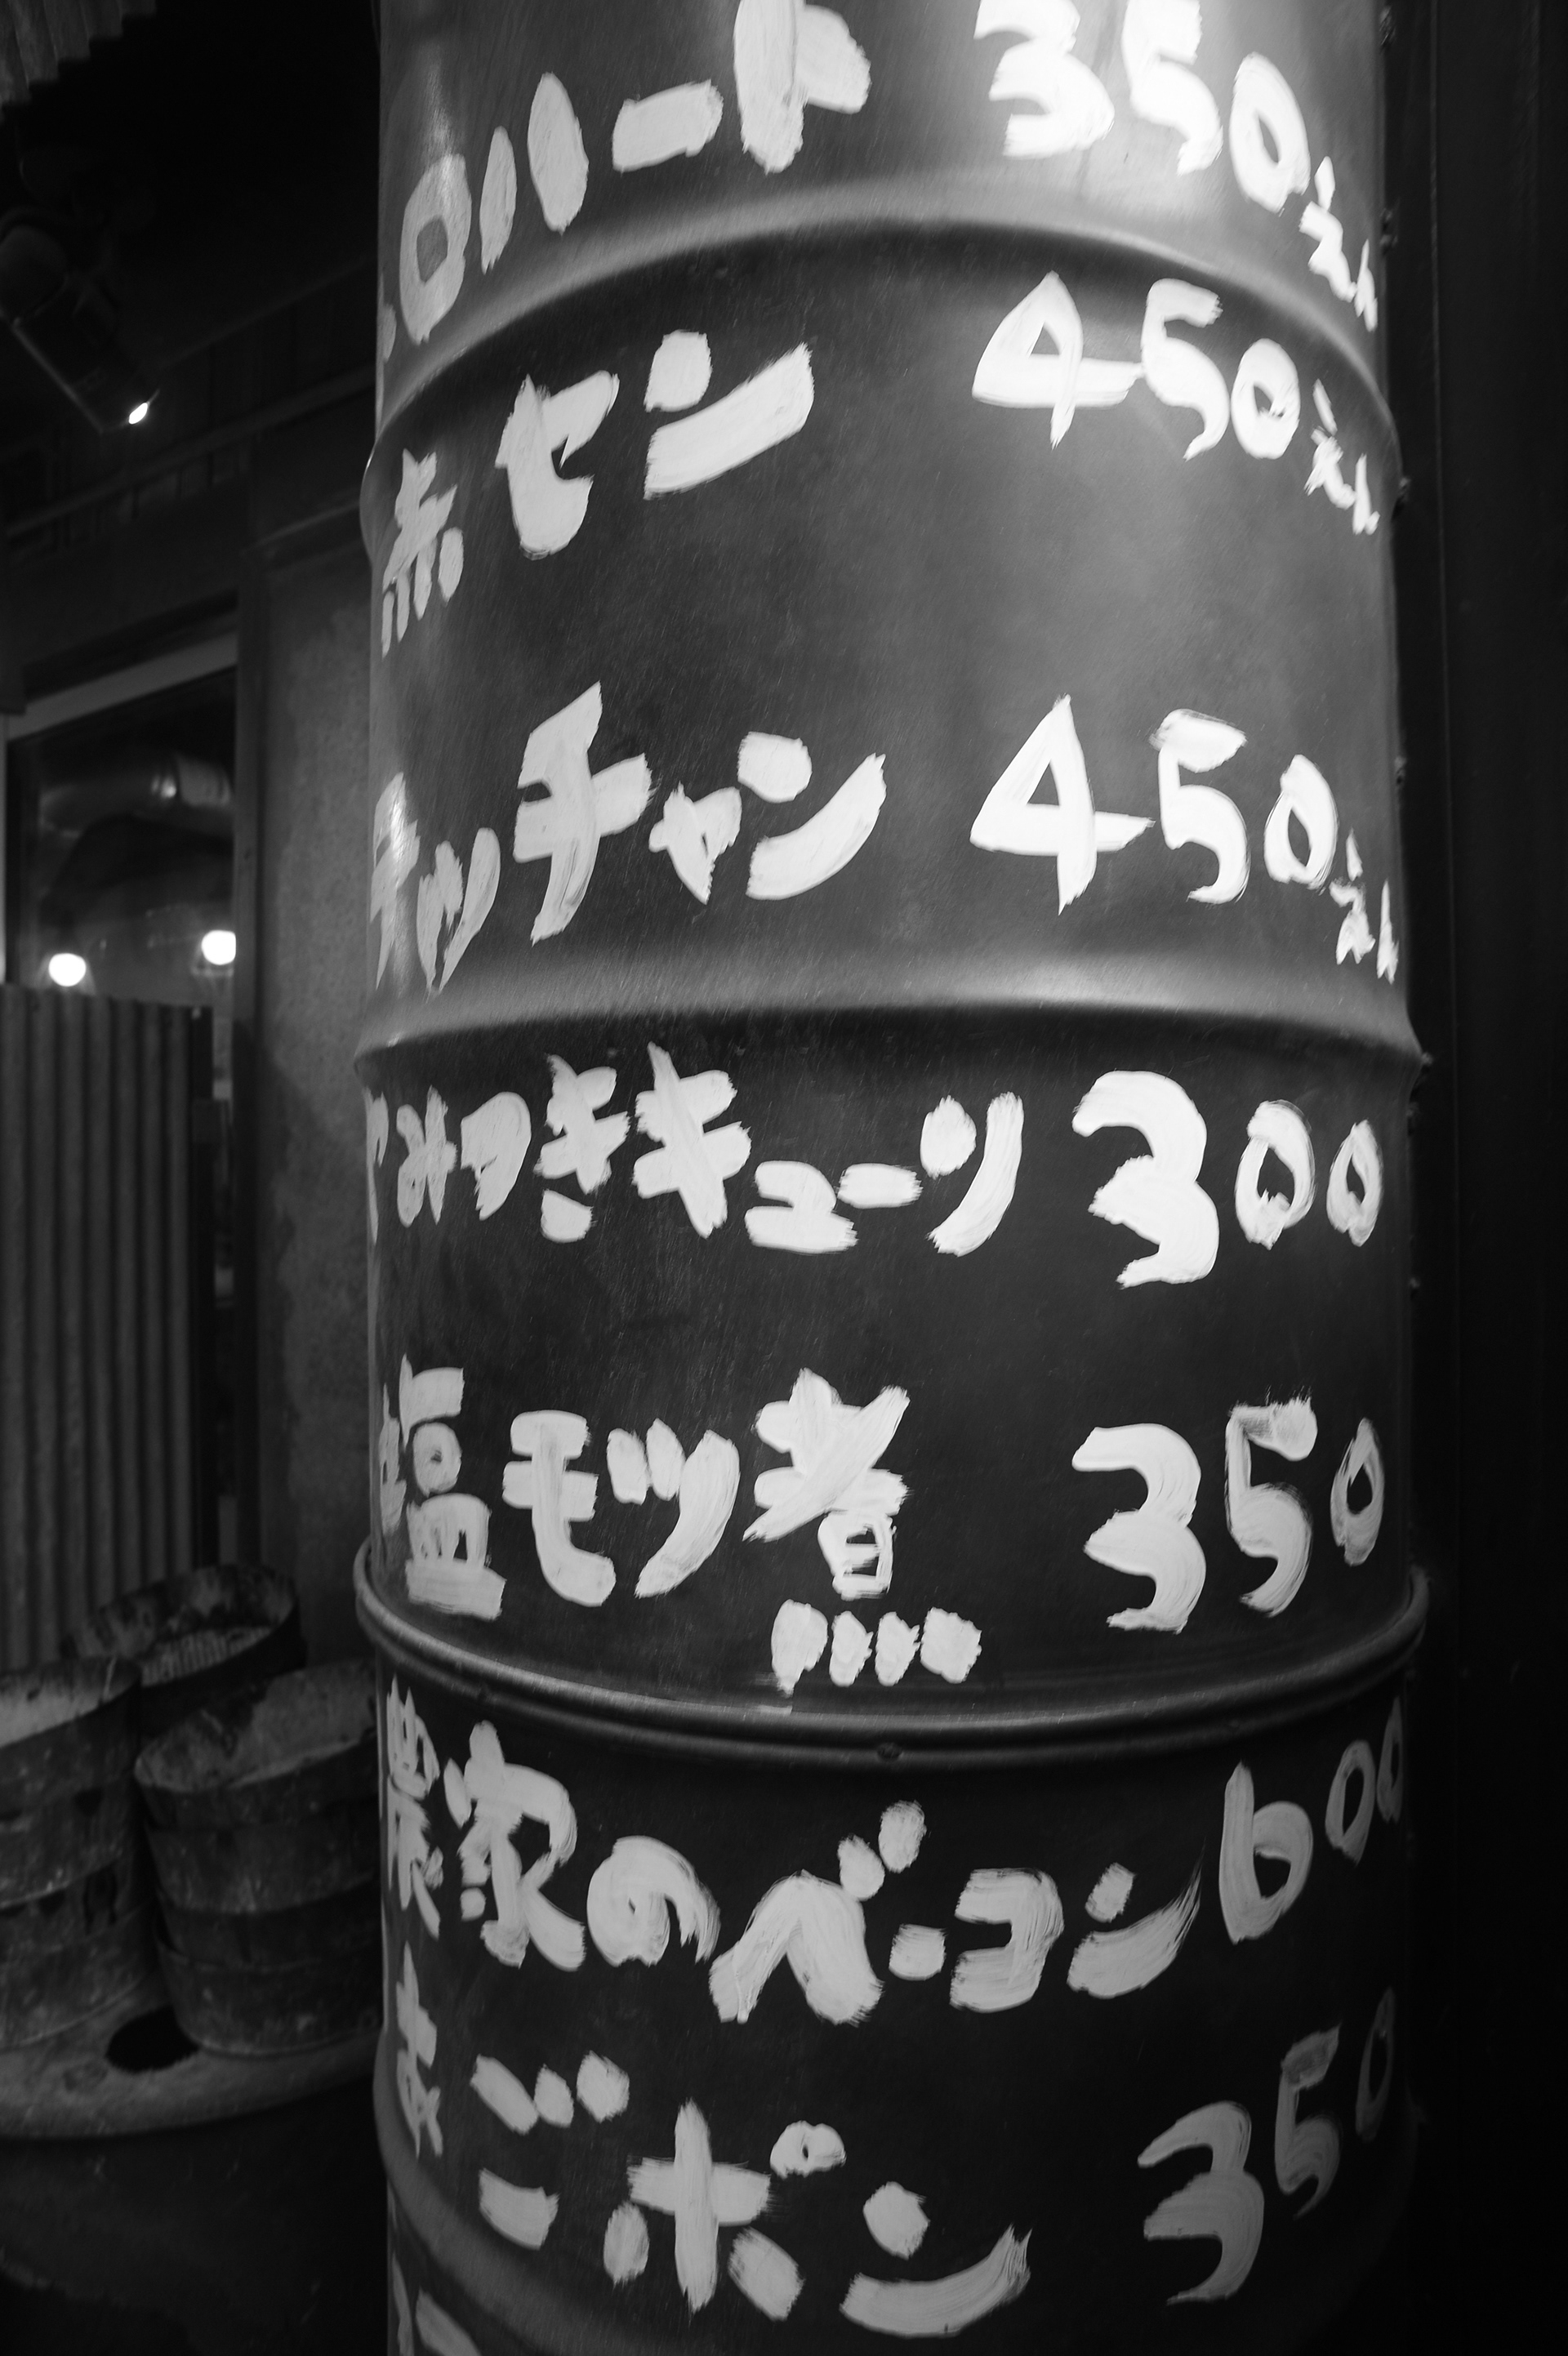 ロハート 350えん
赤セン 450えん
テッチャン 450えん
みつききューり 300
塩モツ煮 350
農家のベーコン 600
まごポン 350